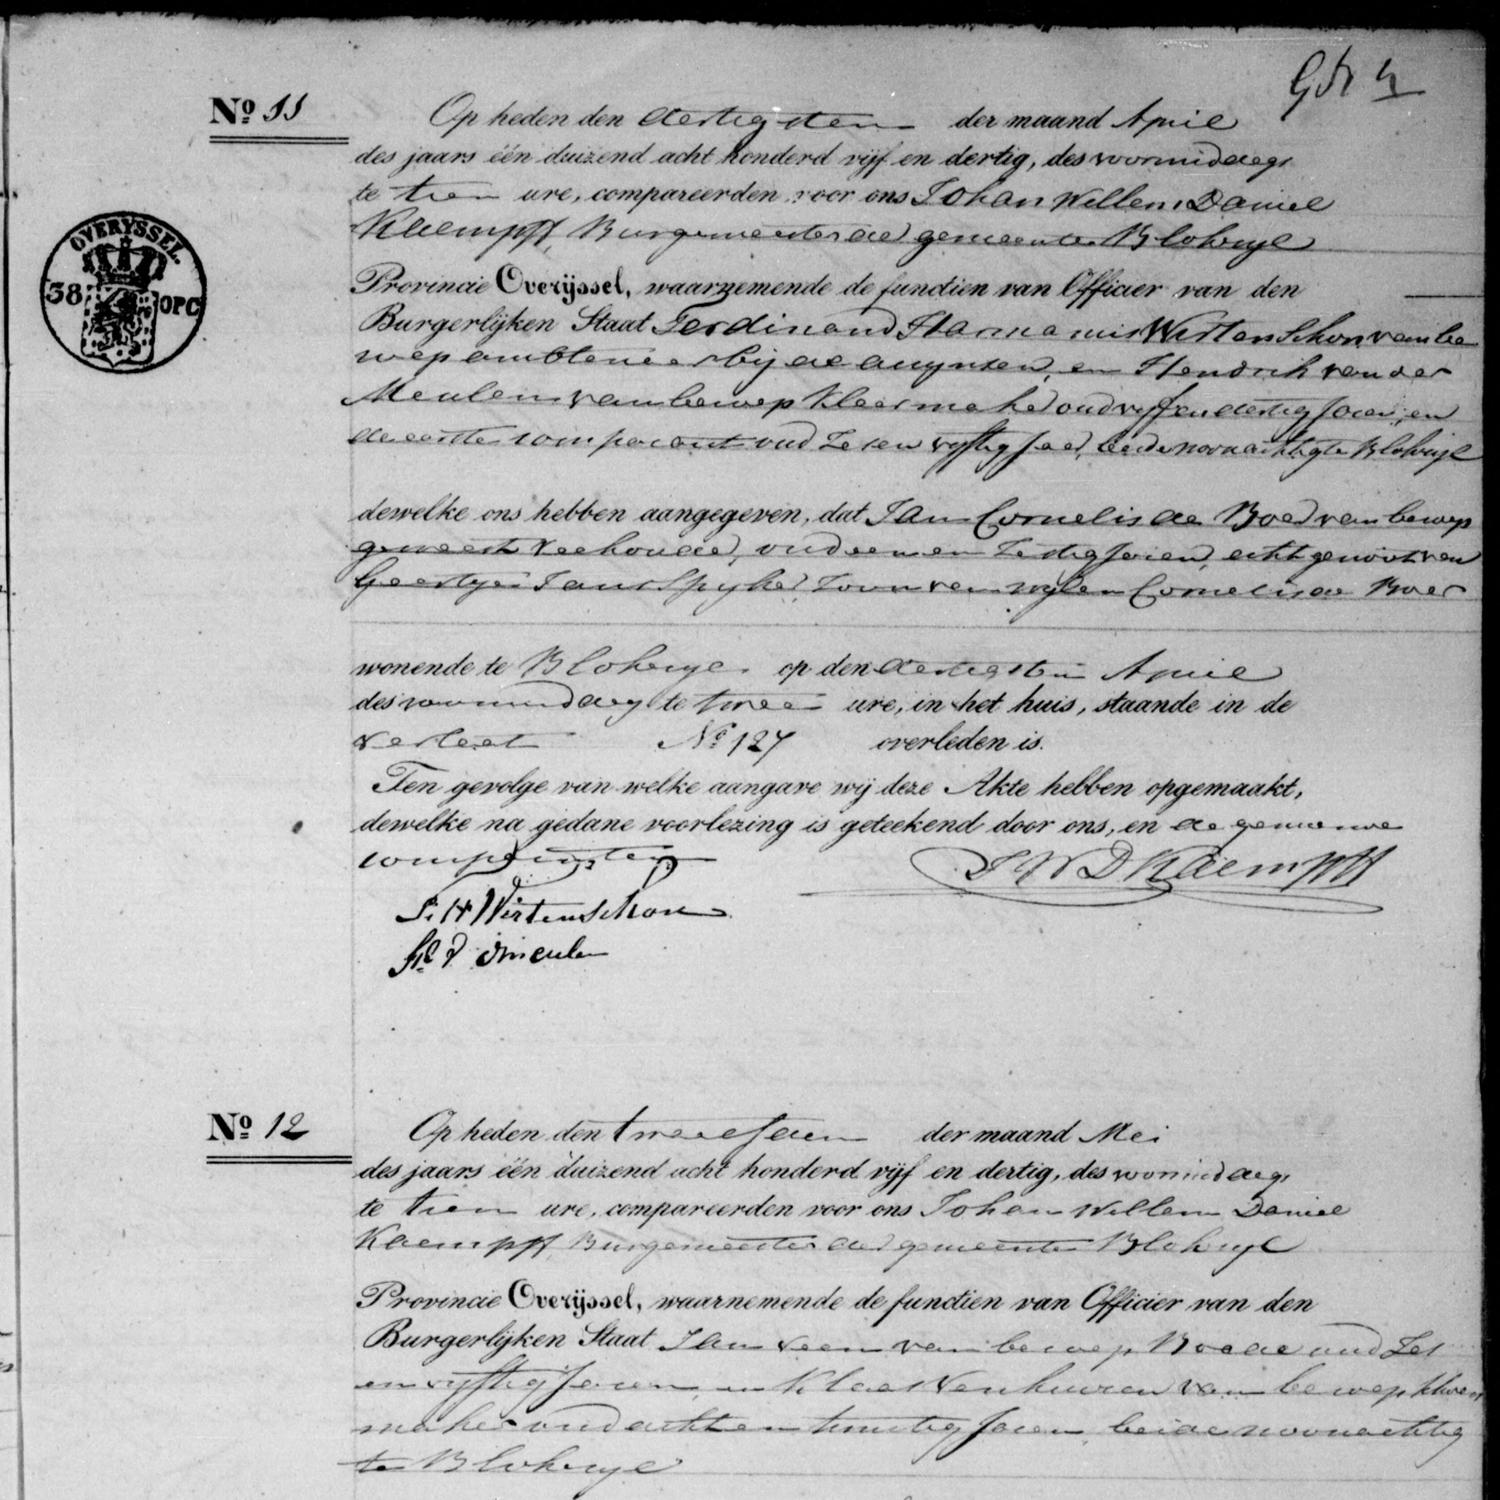 Gdr 4
No 11
Op heden den dertigsten der maand April
des jaars één duizend acht honderd vijf en dertig, des voormiddags
te tien ure, compareerden voor ons Johan Willem Daniel
Kaempff, Burgemeester der gemeente Blokzyl
OVERYSSEL.
38 OPC
Provincie Overijssel, waarnemende de functien van Officier van den
Burgerlijken Staat Ferdinand Harmannus Wirtenschon van be
roep ambtenaar bij de accynsen, en Hendrik van der
Meulen van beroep kleermaker oud vyf en dertig Jaren, en
de eerste comparant oud zes en vyftig Jaar, beide woonachtig te Blokzyl
dewelke ons hebben aangegeven, dat Jan Cornelis de Boer van beroep
geweest veehouder, oud een en zestig Jaren, echtgenoot van
Geertjen Jans Spyker Zoon van wylen Cornelis de Boer
wonende te Blokzyl op den dertigsten April
des voormiddags te twee ure, in het huis, staande in de
verlaat No 127 overleden is.
Ten gevolge van welke aangave wij deze Akte hebben opgemaakt,
dewelke na gedane voorlezing is geteekend door ons, en de genoemde
comparanten
J W D Kaempff
F. H Wirtenschon
H. v d meulen
No 12
Op heden den tweeden der maand Mei
des jaars één duizend acht honderd vijf en dertig, des voormiddags
te tien ure, compareerden voor ons Johan Willem Daniel
Kaempff, Burgemeester der gemeente Blokzyl
Provincie Overijssel, waarnemende de functien van Officier van den
Burgerlijken Staat Jan veen van beroep Bode oud Zes
en vyftig Jaren, en Klaas Venhuizen van beroep schoen
maker oud acht en twintig Jaren, beide woonachtig
te Blokzyl